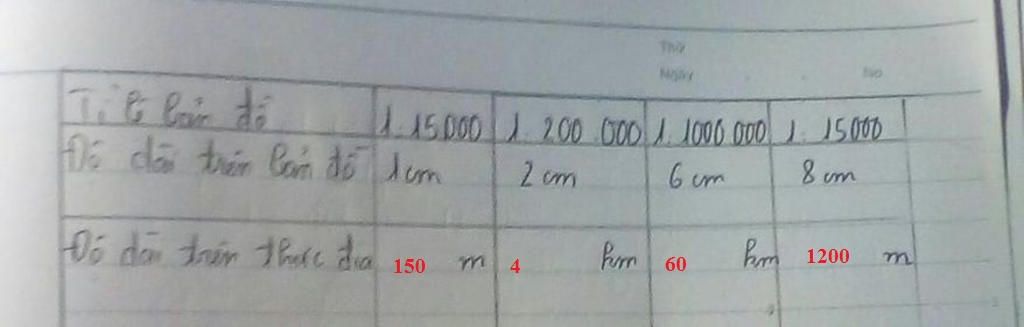 Thứ
Ngày No
Tỉ lệ bản đồ 1:15000 1:200 000 1:1000 000 1:15000
Độ dài trên bản đồ 1cm 2cm 6cm 8cm
Độ dài trên thực địa 150 m 4 km 60 km 1200 m